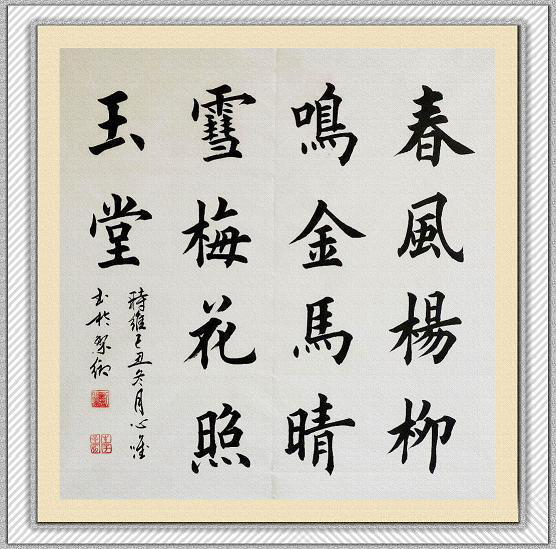 春風楊柳
鳴金馬晴
雪梅花照
玉堂
時維己丑冬月心唯
書於梁御